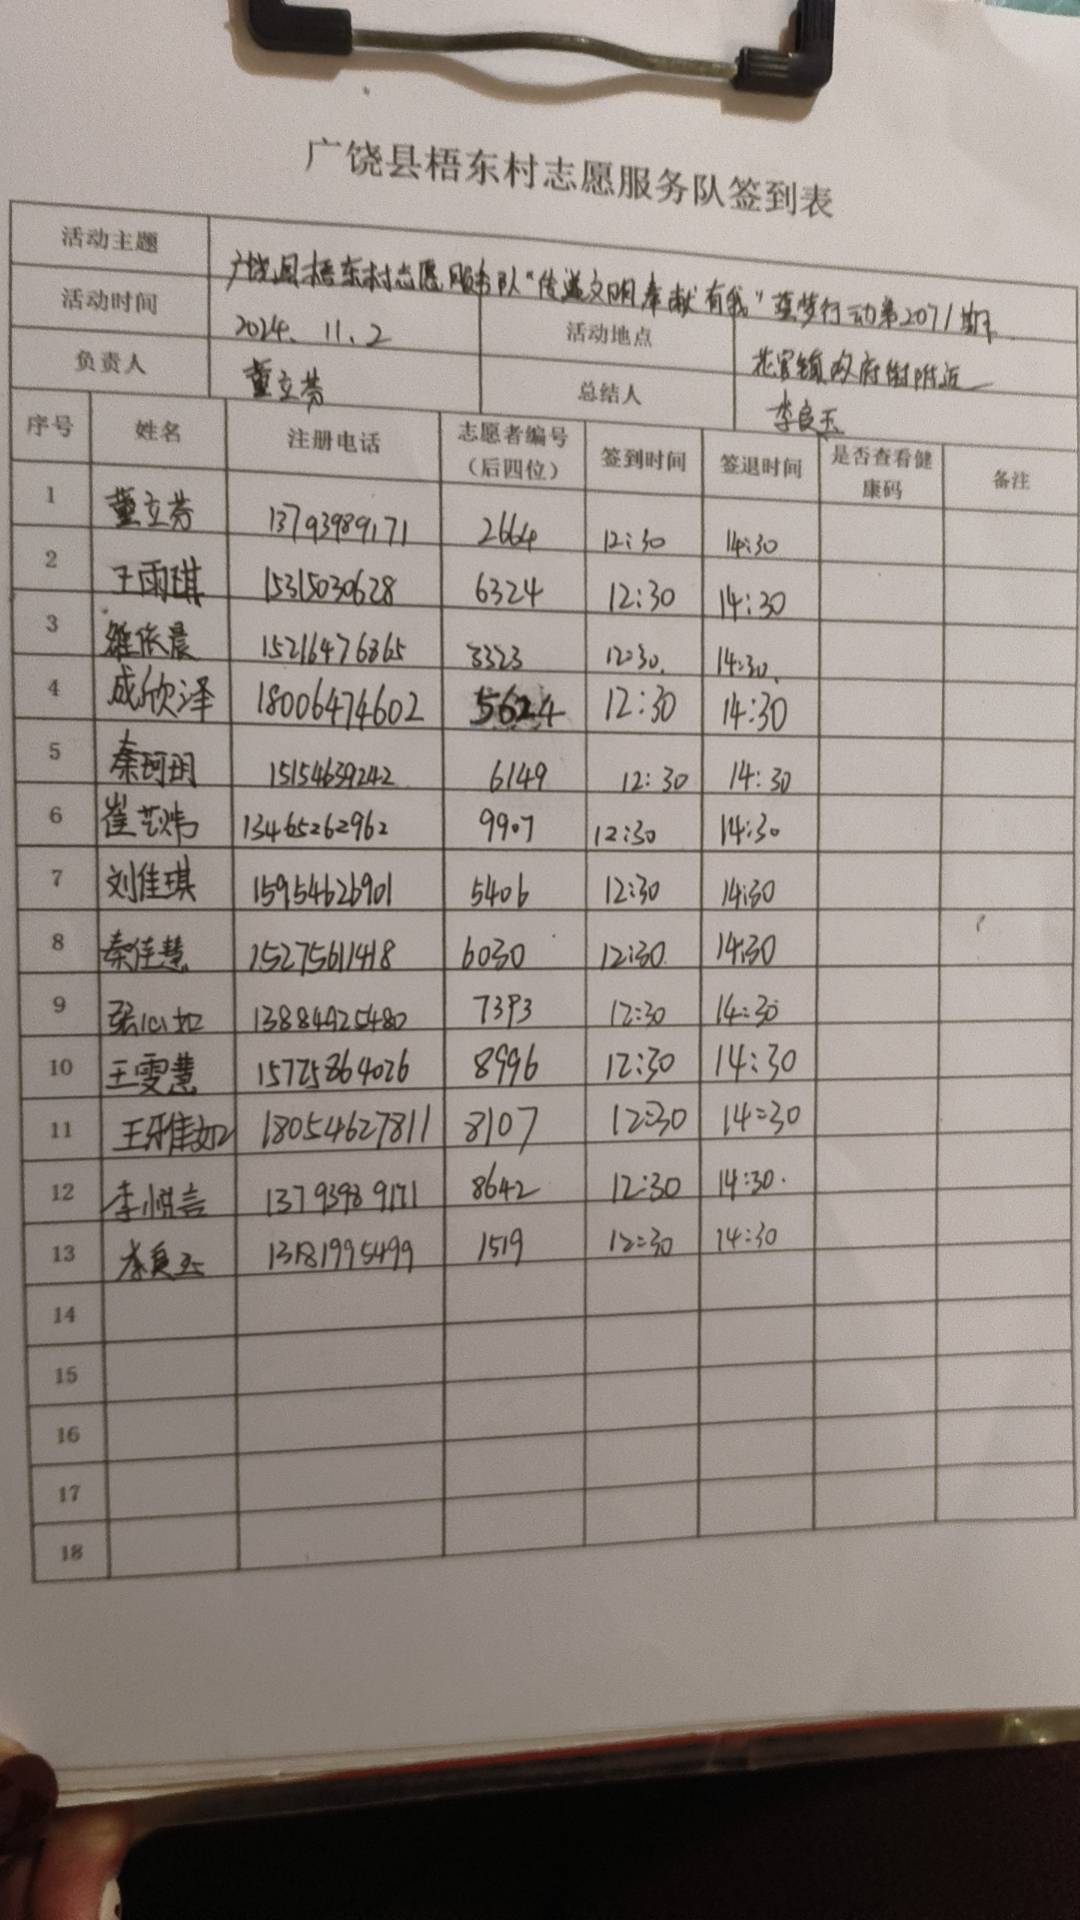 广饶县梧东村志愿服务队签到表
活动主题 广饶县梧东村志愿服务队“传递文明奉献有我”筑梦行动第2071期
活动时间 2024.11.2 活动地点 花官镇政府街附近
负责人 董立芬 总结人 李良玉
序号 姓名 注册电话 志愿者编号（后四位） 签到时间 签退时间 是否查看健康码 备注
1 董立芬 13793989171 2664 12:30 14:30
2 王雨琪 15315030628 6324 12:30 14:30
3 依晨 15216476865 8323 12:30 14:30
4 成欣泽 18006474602 5624 12:30 14:30
5 秦珂玥 15154639242 6149 12:30 14:30
6 崔艺炜 13465262962 9907 12:30 14:30
7 刘佳琪 15954626901 5406 12:30 14:30
8 秦佳慧 15275611418 6030 12:30 14:30
9 张心如 13884925480 7393 12:30 14:30
10 王雯慧 15725864026 8996 12:30 14:30
11 王 18054627811 8107 12:30 14:30
12 李悦言 13793989171 8642 12:30 14:30
13 李良玉 13181995499 1519 12:30 14:30
14
15
16
17
18